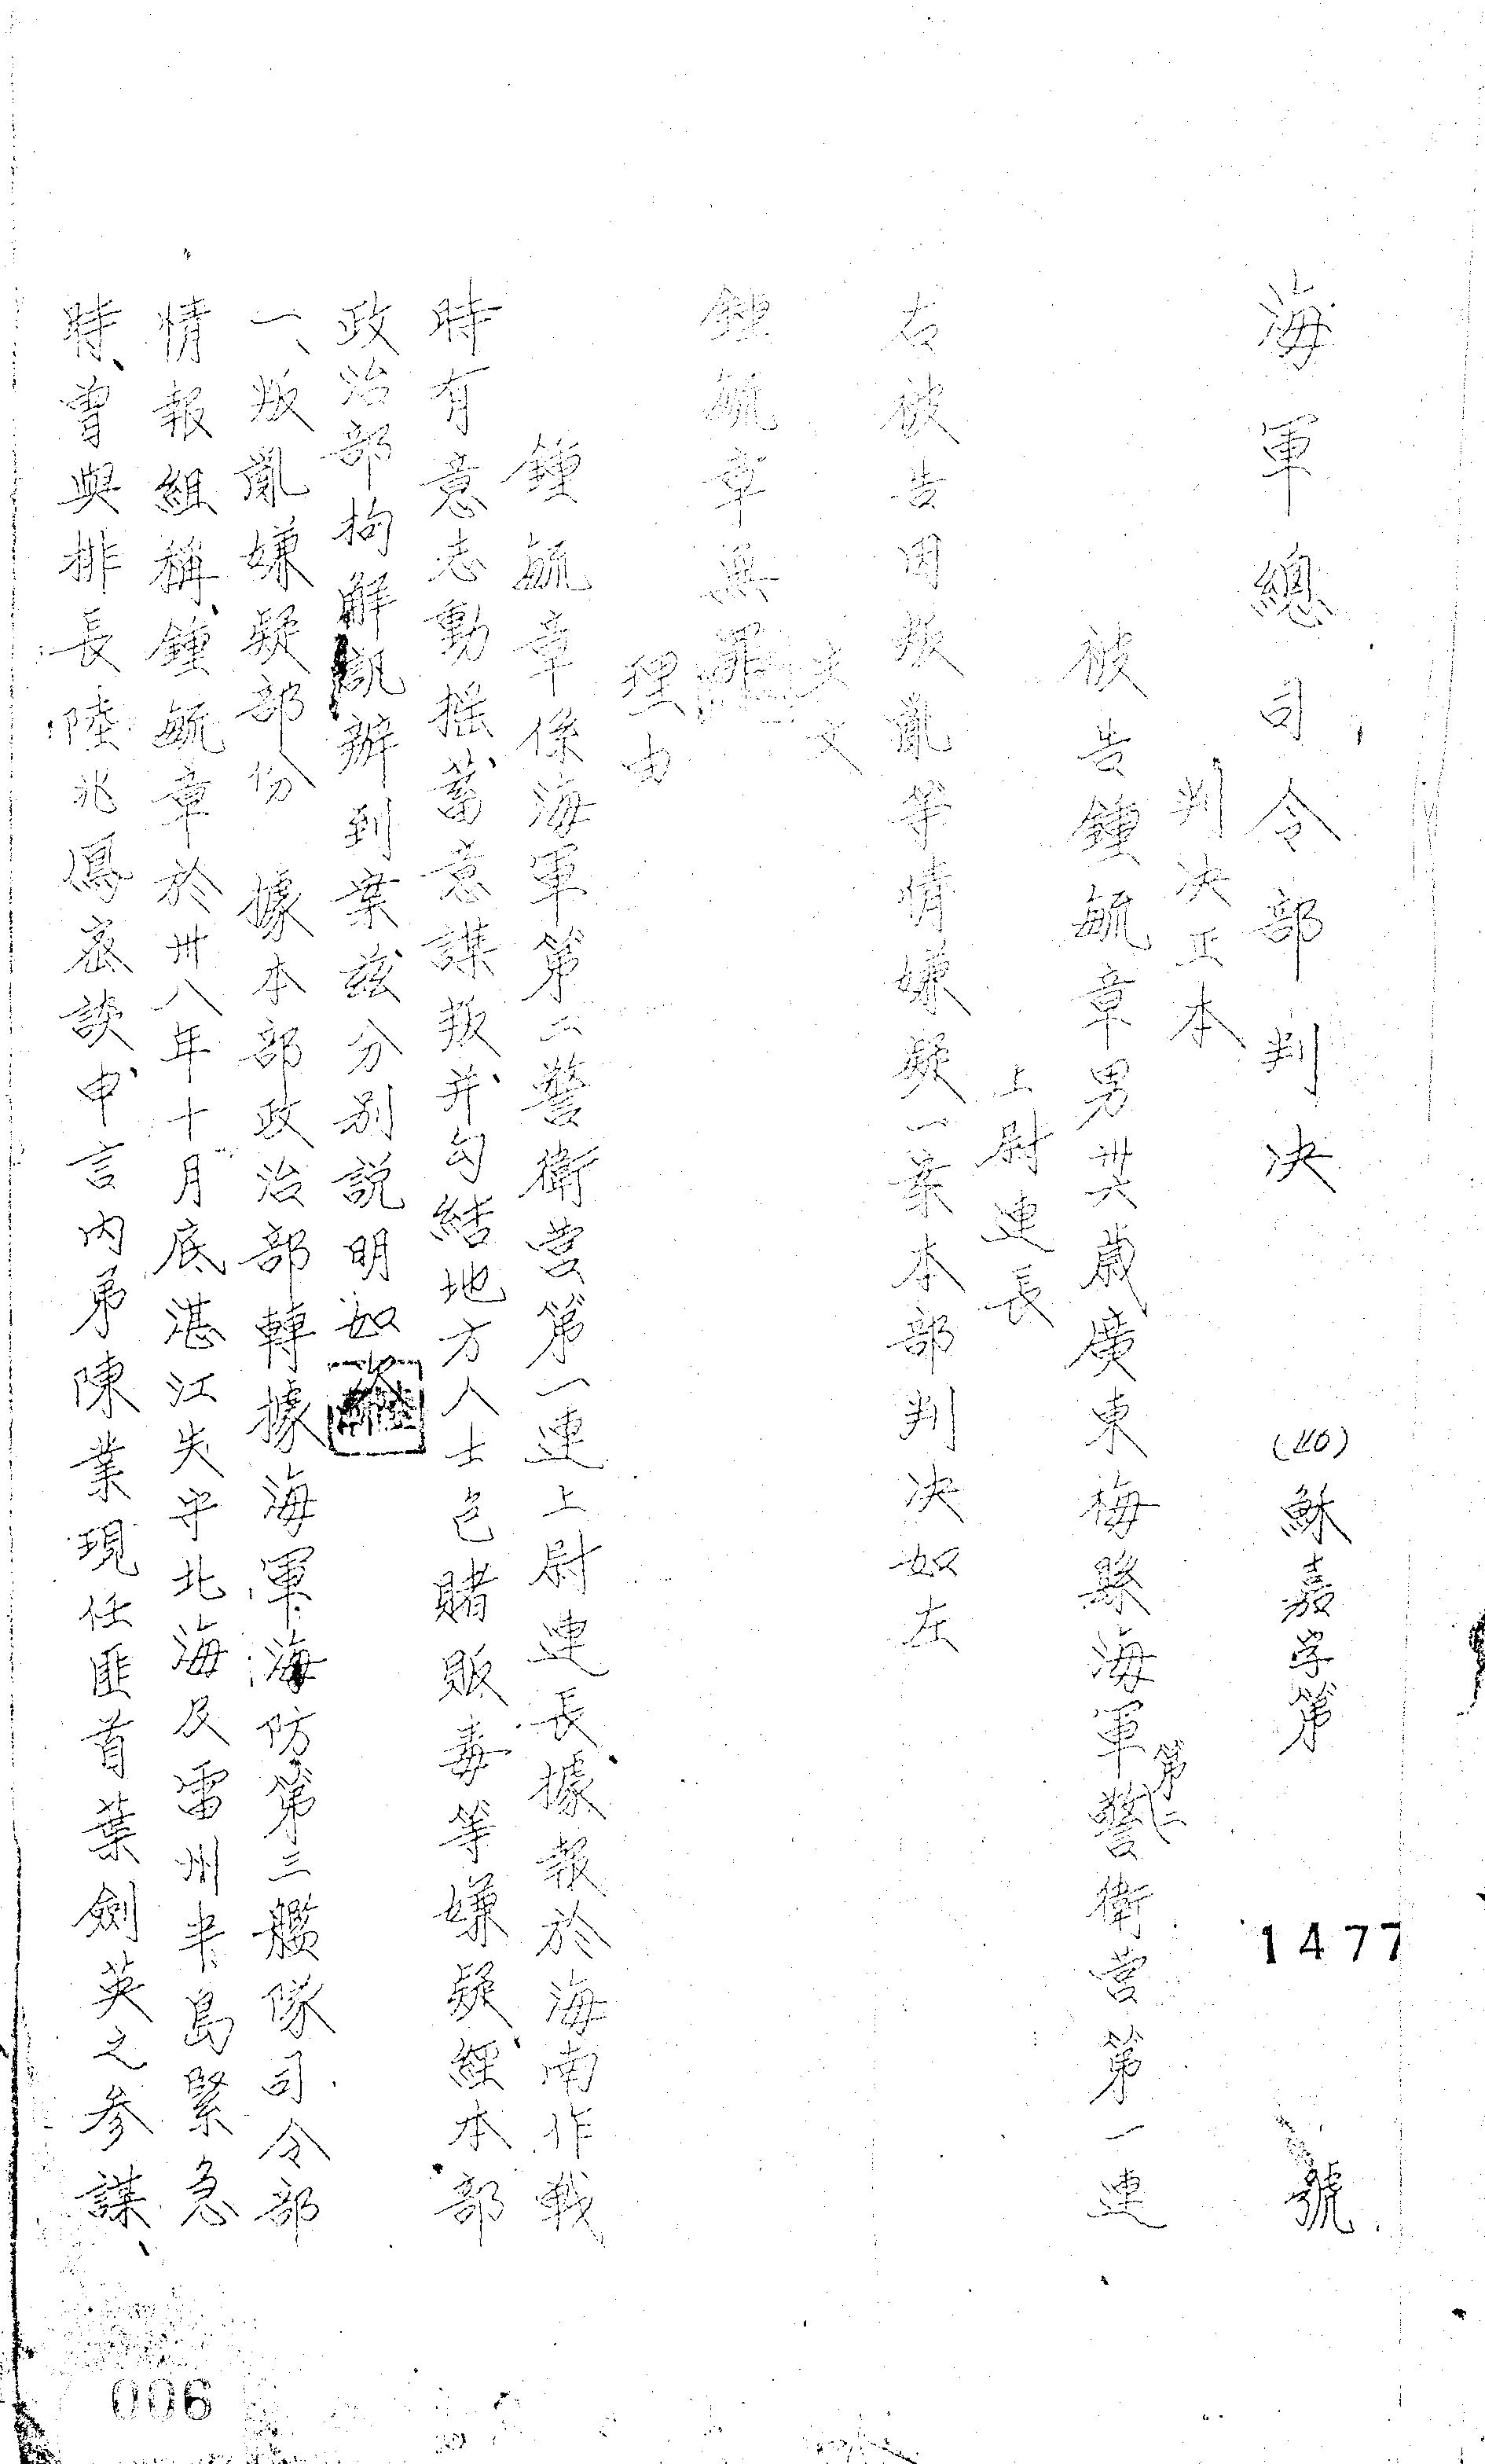 海軍總司令部判決 (40) 穌嘉字第 1477 號
判決正本
被告鍾毓章男卅六歲廣東梅縣海軍第二警衛營第一連
上尉連長
右被告因叛亂等情嫌疑一案本部判決如左
主文
鍾毓章無罪
理由
鍾毓章係海軍第二警衛營第一連上尉連長據報於海南作戰
時有意志動搖、蓄意謀叛、并勾結地方人士包賭販毒等嫌疑經本部
政治部拘解訊辦到案茲分別說明如次
一、叛亂嫌疑部份 據本部政治部轉據海軍海防第三艦隊司令部
情報組稱、鍾毓章於卅八年十月底湛江失守北海及雷州半島緊急
時、曾與排長陸兆鳳密談、申言內弟陳業現任匪首葉劍英之參謀、
006